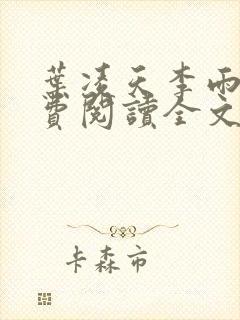 葉凌天李雨
費閱讀全文
卡森市